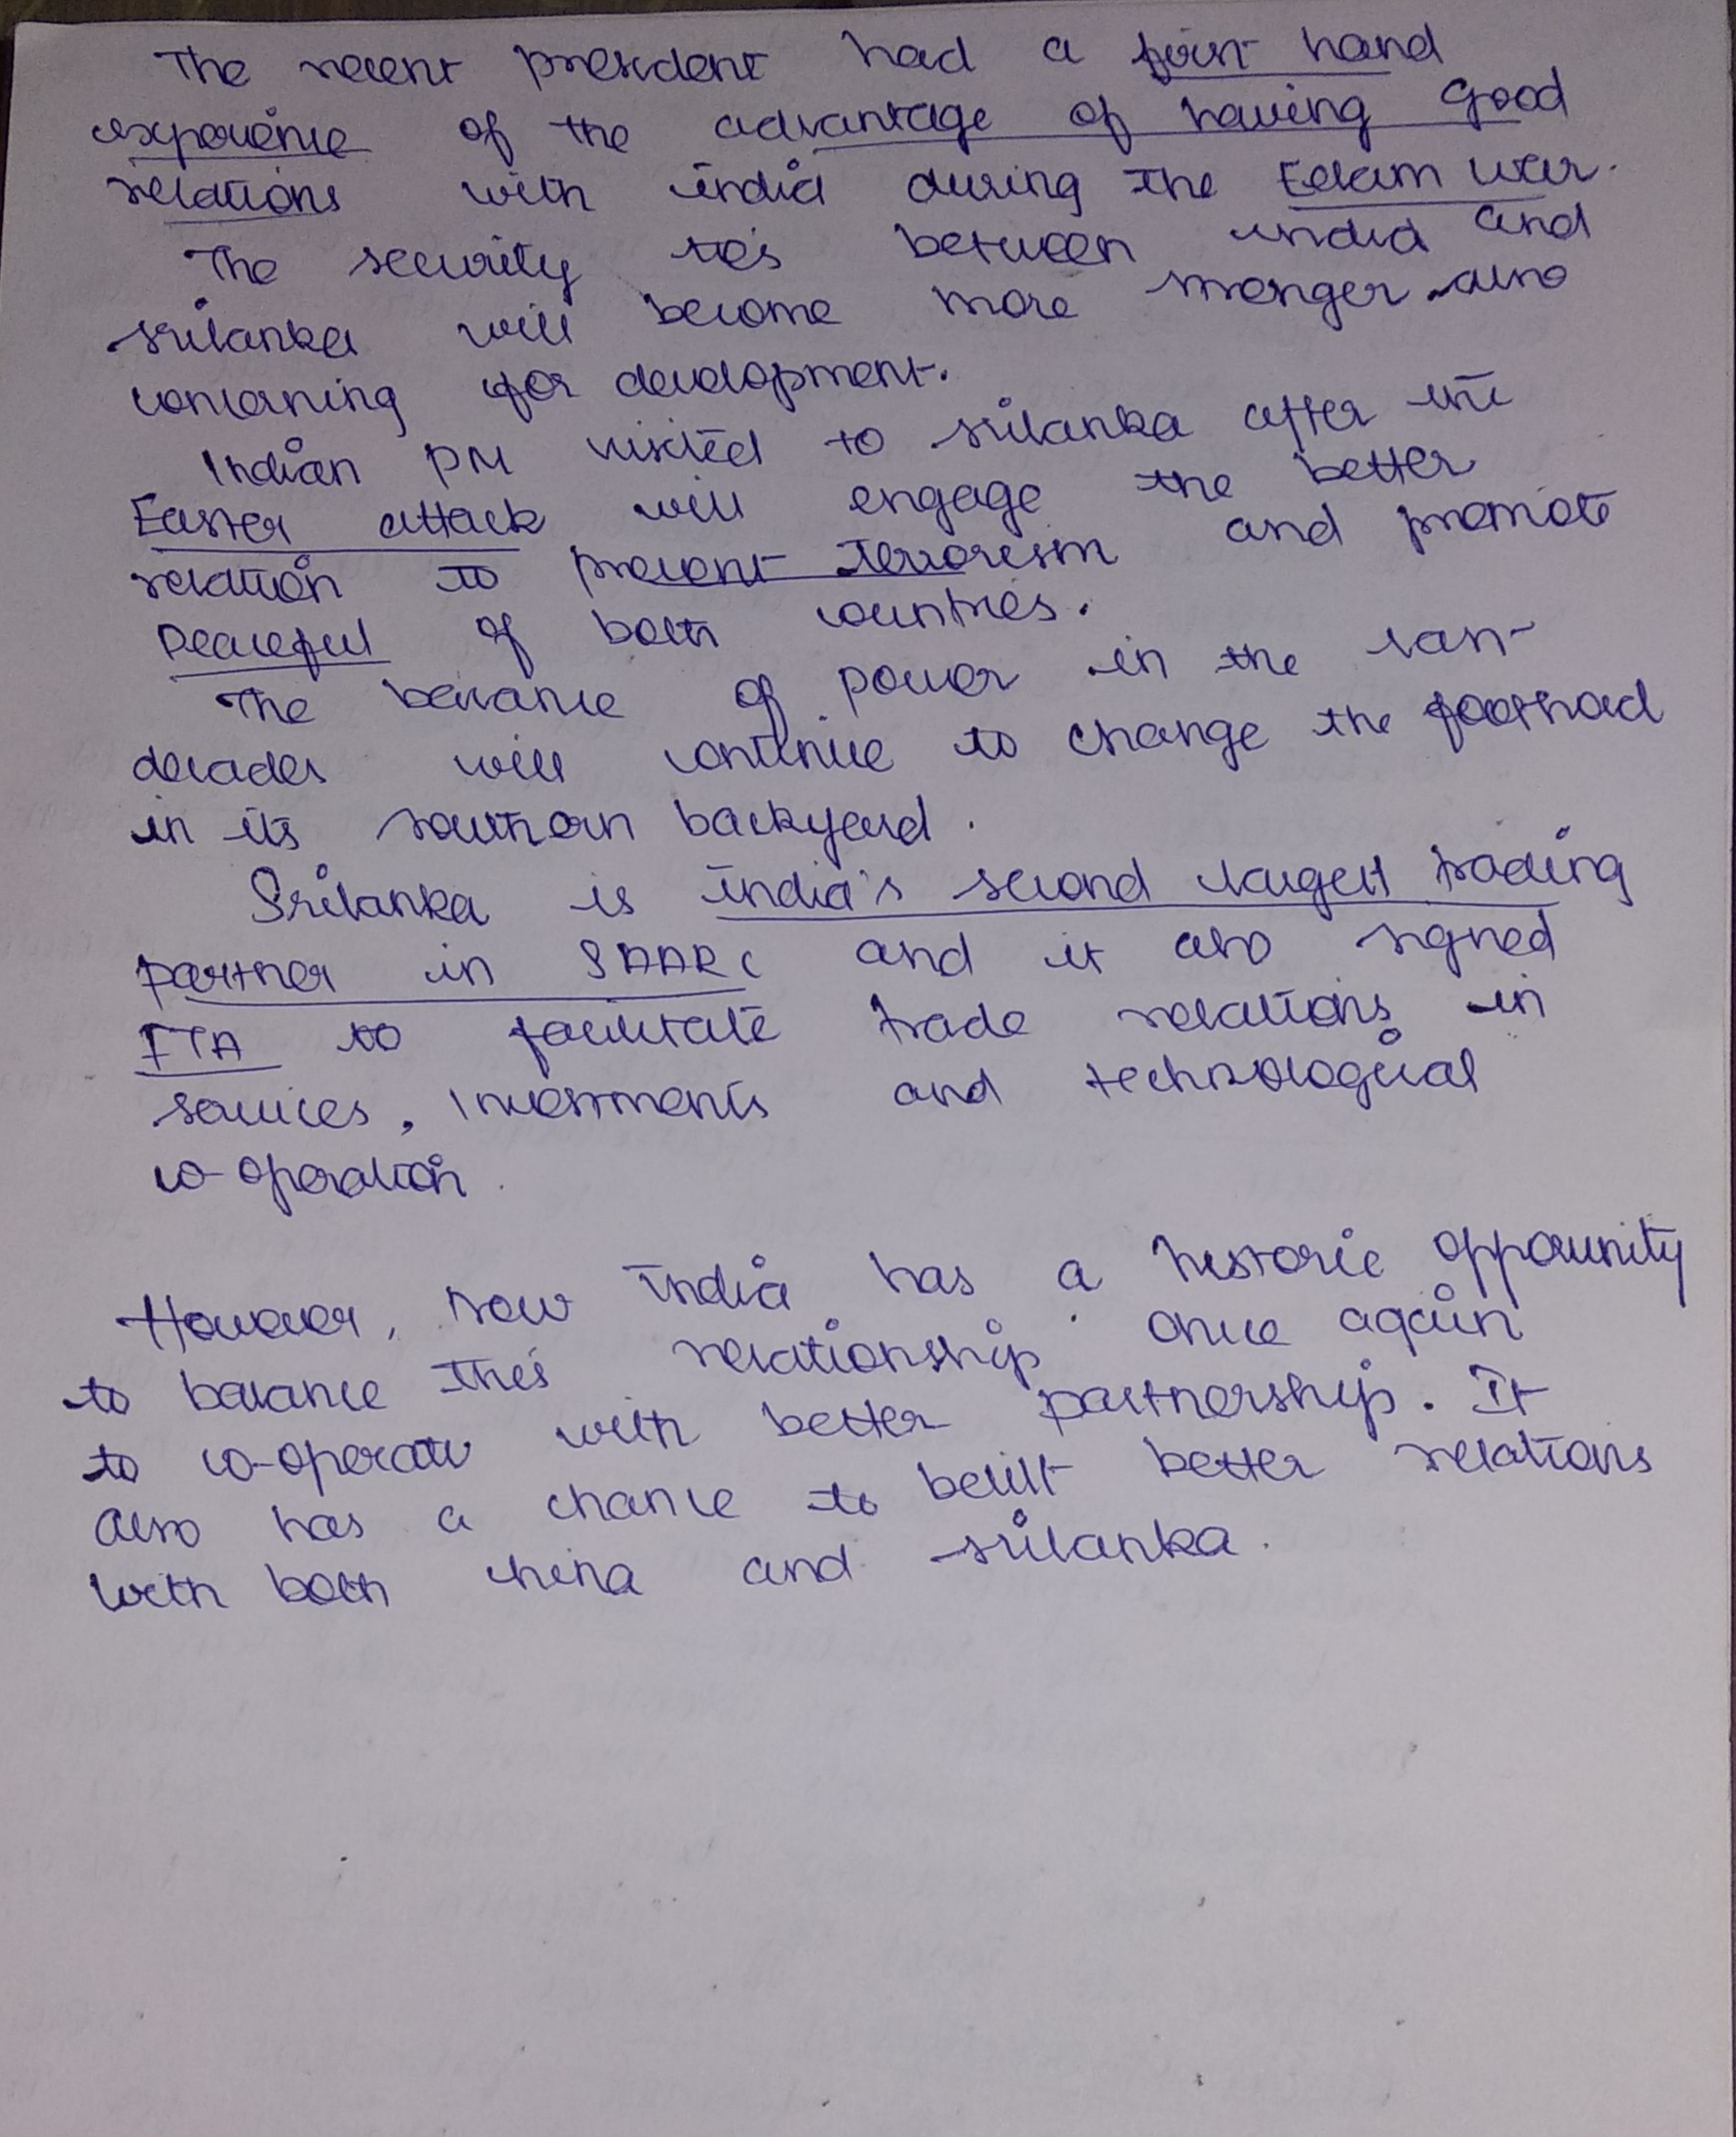 The recent president had a first hand
experience of the advantage of having good
relations with india during the Eelam war.
The security ties between india and
srilanka will become more stronger also
concerning for development.
Indian PM visited to srilanka after the
Easter attack will engage the better
relation to prevent terrorism and promote
peaceful of both countries.
The balance of power in the last
decades will continue to change the foothold
in its southern backyard.
Srilanka is india's second largest trading
partner in SAARC and it also signed
FTA to facilitate trade relations in
services, investments and technological
co-operation.
However, now india has a historic oppounity
to balance this relationship once again
to co-operate with better partnership. It
also has a chance to built better relations
with both china and srilanka.